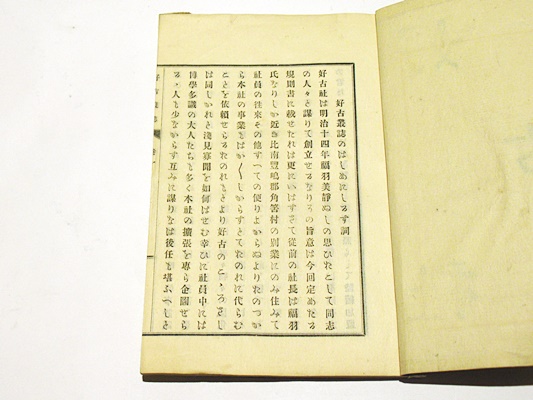 好古叢誌のはしめにしるす詞
好古社は明治十四年福羽美靜ぬしの思ひたちとして同志
の人々と謀りて創立せるなりその旨意は今回定めたる
規則書に載せたれは更にいはすさて從前の社長は福羽
氏なりしか近き比南豊嶋郡角筈村の別業にのみ住みて
社員の往來その他すへての便りよからぬよりたのつか
ら本社の事業もはか〱しからすとてたのれに代らむ
ことを依頼せらるたのれもとより好古のこゝろさし
は同しかれと淺見寡聞を如何はせむ幸ひに社員中には
博學多識の大人たちも多く本社の擴張を專ら企圖せら
るゝ人も少なからす互みに謀りなは後任も堪ふへしさ
好古叢誌